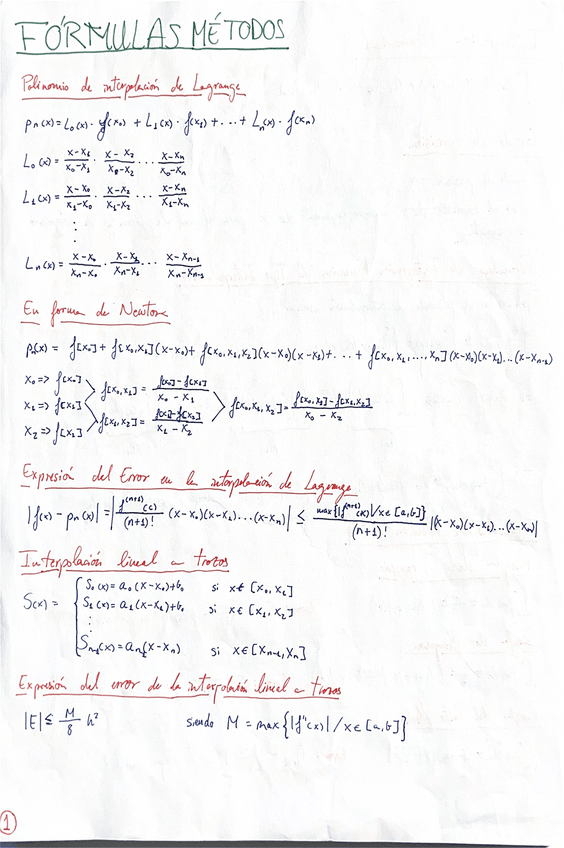 FÓRMULAS MÉTODOS
Polinomio de interpolación de Lagrange
Pn(x) = L₀(x) · f(x₀) + L₁(x) · f(x₁) + ... + Ln(x) · f(xn)
L₀(x) = (x-x₁)/(x₀-x₁) · (x-x₂)/(x₀-x₂) ... (x-xn)/(x₀-xn)
L₁(x) = (x-x₀)/(x₁-x₀) · (x-x₂)/(x₁-x₂) ... (x-xn)/(x₁-xn)
⋮
Ln(x) = (x-x₀)/(xn-x₀) · (x-x₁)/(xn-x₁) ... (x-xn-1)/(xn-xn-1)
En forma de Newton
f[x₀] + f[x₀,x₁](x-x₀) + f[x₀,x₁,x₂](x-x₀)(x-x₁) + ... + f[x₀,x₁,...,xn](x-x₀)(x-x₁)...(x-xn-1)
x₀ => f[x₀]
f[x₀,x₁] = / x₀ - x₁
x₁ => f[x₁]
f[x₀,x₁,x₂] = (f[x₀,x₁] - f[x₁,x₂])/(x₀ - x₂)
f[x₁,x₂] = / x₁ - x₂
x₂ => f[x₂]
Expresión del Error en la interpolación de Lagrange
|f(x) - Pn(x)| = |f⁽ⁿ⁺¹⁾(c)/(n+1)! (x-x₀)(x-x₁)...(x-xn)| ≤ max{|f⁽ⁿ⁺¹⁾(x)|/x∈[a,b]}/(n+1)! |(x-x₀)(x-x₁)...(x-xn)|
Interpolación lineal a trozos
S(x) = {
S₀(x) = a₀(x-x₀)+b₀ si x∈[x₀,x₁]
S₁(x) = a₁(x-x₁)+b₁ si x∈[x₁,x₂]
⋮
Sn-1(x) = (x-xn) si x∈[xn-1,xn]
Expresión del error de la interpolación lineal a trozos
|E| ≤ M/8 h² siendo M = max{|f''(x)| / x∈[a,b]}
1